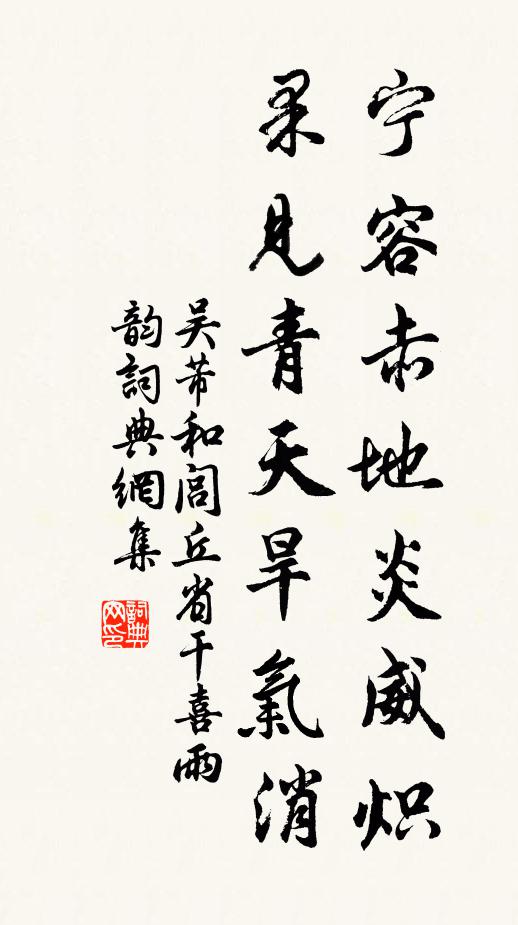 宁容赤地炎威炽
果见青天旱氣消
吴芾和闾丘省干喜雨
韵詞典網集